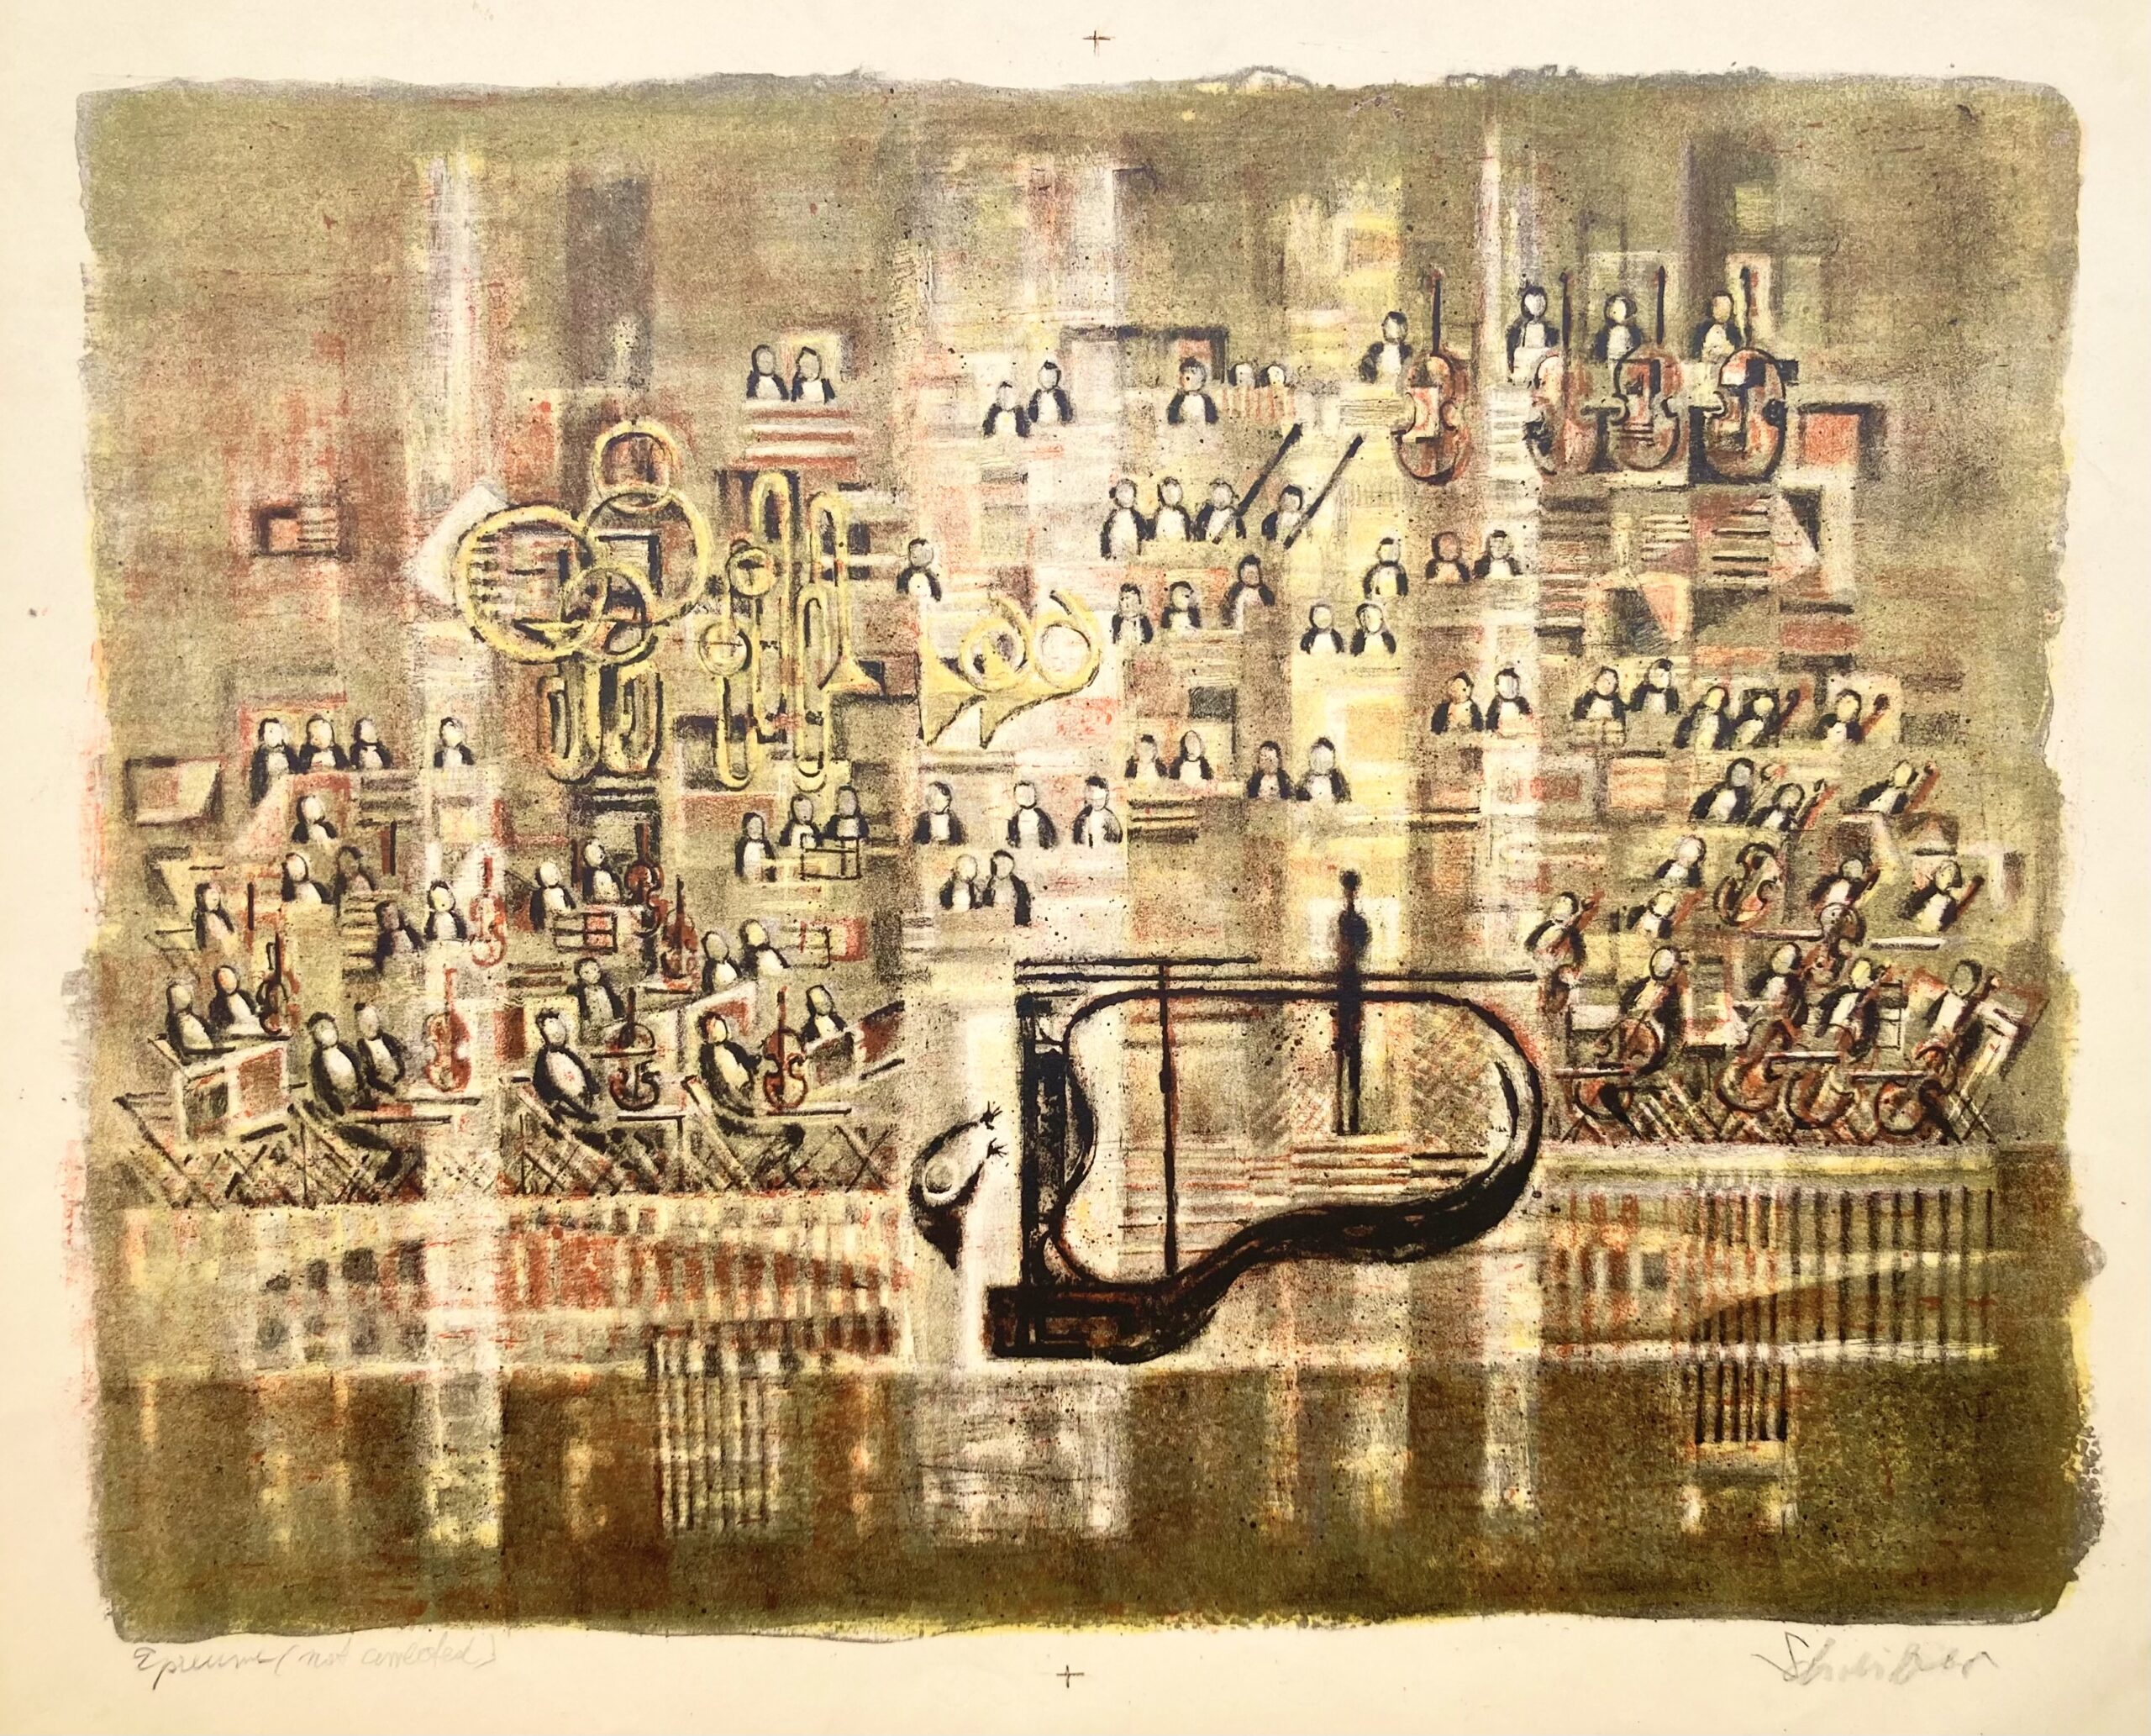 Epreuve (not corrected)
Schreiber